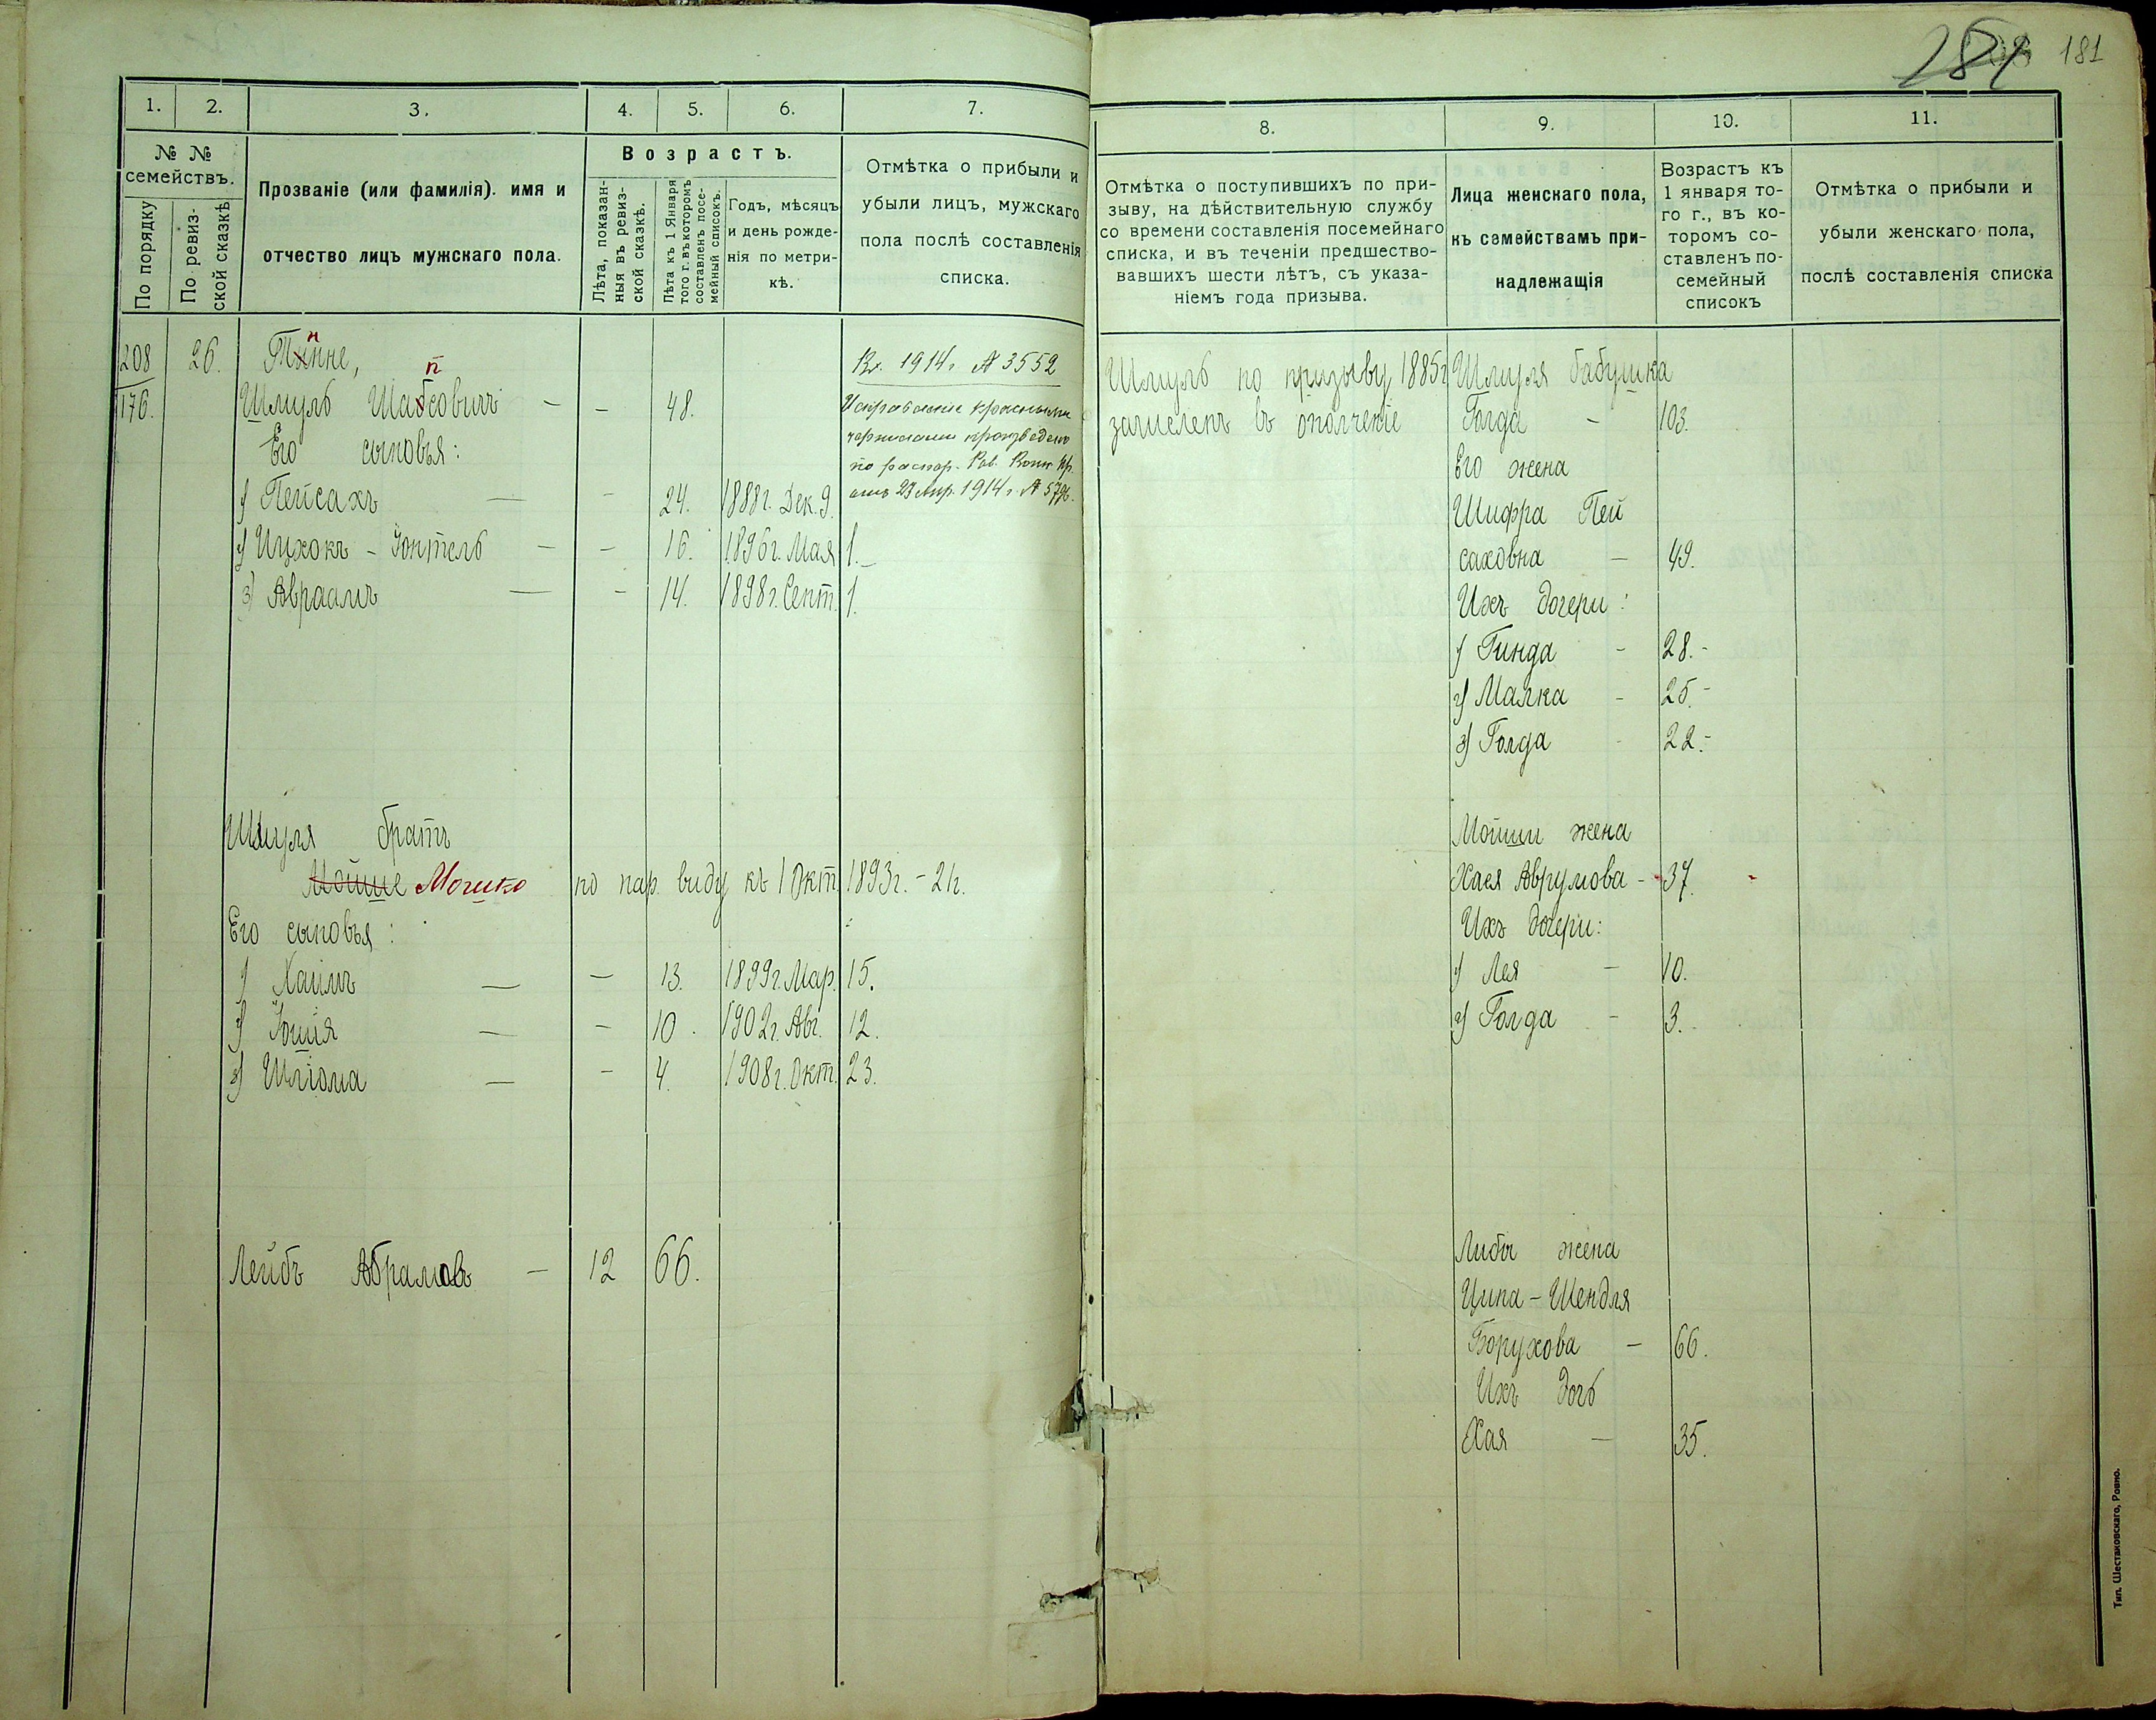 181
1. 2. 3. 4. 5. 6. 7.
№ № семействъ.
По порядку
По ревизской сказкѣ
Прозваніе (или фамилія). имя и
отчество лицъ мужскаго пола.
Возрастъ.
Лѣта, показан-
ныя въ ревиз-
ской сказкѣ.
Лѣта къ 1 Января
того г. въ которомъ
составленъ посе-
мейный списокъ.
Годъ, мѣсяцъ
и день рожде-
нія по метри-
кѣ.
Отмѣтка о прибыли и
убыли лицъ, мужскаго
пола послѣ составленія
списка.
208 26.
176.
Шмуль Шабсовичъ - - 48.
Его сыновья:
1) Пейсахъ — - 24. 1888г. Дек. 9.
2) Ицхокъ - Іонтель — - 16. 1896г. Мая 1.
3) Авраамъ — - 14. 1898г. Сент. 1.
Вх. 1914г № 3552
Исправленіе красными
чернилами произведено
по распор. Ров. Воин. Пр.
отъ 23 Апр. 1914г. №
Шмуля братъ
Мойше Мошко по нар. виду къ 1 Окт. 1893г. - 21г.
Его сыновья:
1) Хаимъ — — 13. 1899г. Мар. 15.
2) Іошія — - 10. 1902г. Авг. 12.
3) Шліома — - 4. 1908г. Окт. 23.
Лейбъ Абрамовъ — 12 66.
8. 9. 10. 11.
Отмѣтка о поступившихъ по при-
зыву, на дѣйствительную службу
со времени составленія посемейнаго
списка, и въ теченіи предшество-
вавшихъ шести лѣтъ, съ указа-
ніемъ года призыва.
Лица женскаго пола,
къ семействамъ при-
надлежащія
Возрастъ къ
1 января то-
го г., въ ко-
торомъ со-
ставленъ по-
семейный
списокъ
Отмѣтка о прибыли и
убыли женскаго пола,
послѣ составленія списка
Шмуль по призыву 1885г
зачисленъ въ ополченіе
Шмуля бабушка
Голда - 103.
Его жена
Шифра Пей
саховна — 49.
Ихъ дочери:
1) Гинда - 28.-
2) Малка - 25.-
3) Голда - 22.-
Мойши жена
Хася Аврумова - 37.
Ихъ дочери:
1) Лея — 10.
2) Голда - 3.
Либы жена
Ципа - Шендля
Борухова — 66.
Ихъ дочь
Хая — 35.
Тип. Шестаковскаго, Ровно.